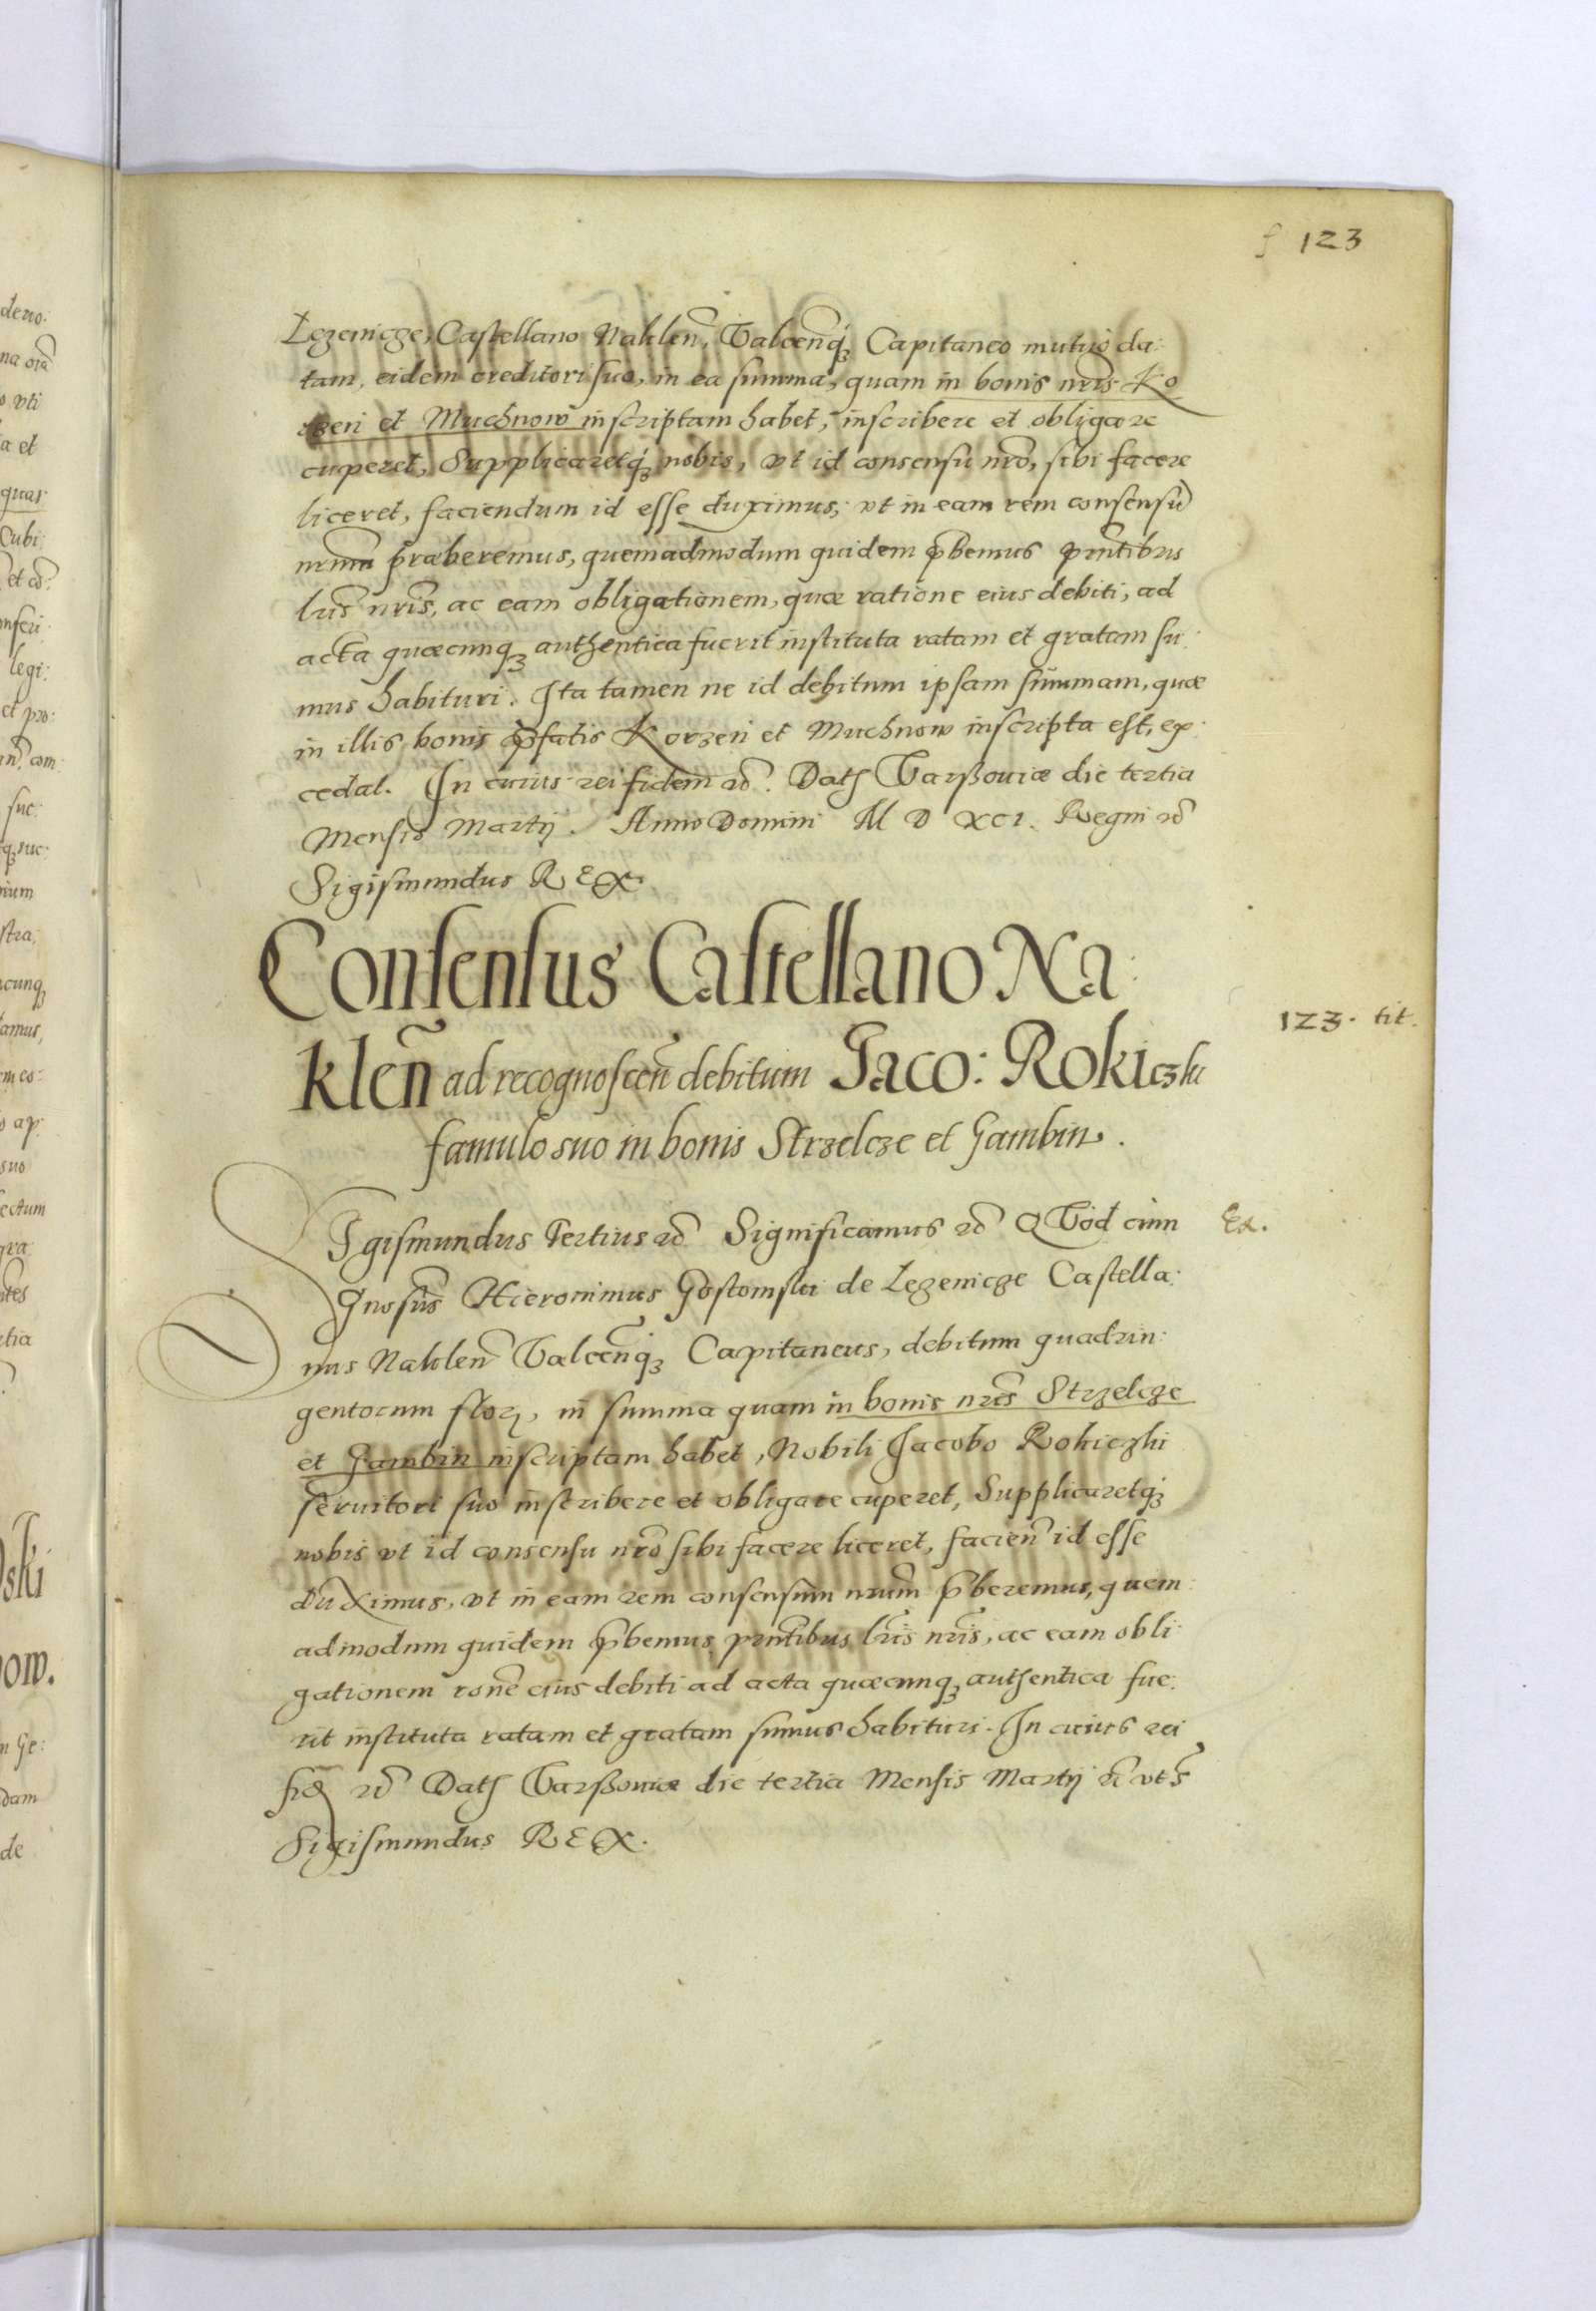 f 123
Lezenicze, Castellano Naklen̄, Valcen̄q́ꝫ Capitaneo mutuo da:
tam, eidem creditori suo, in ea summa, quam in bonis nr̄is Ko
rzen et Muchnow inscriptam habet, inscribere et obligare
cuperet, Supplicaretq́ꝫ nobis, vt id consensu nr̄o, sibi facere
liceret, faciendum id esse duximus, vt in eam rem consensū
nr̄um præberemus, quemadmodum quidem p̄bemus pn̄tibus
lr̄is nr̄is, ac eam obligationem, quæ ratione eius debiti, ad
acta quæcunqꝫ authentica fuerit instituta ratam et gratam su:
mus habituri. Ita tamen ne id debitum ipsam summam, quæ
in illis bonis p̄fatis Korzen et Muchnow inscripta est, ex:
cedat. In cuius rei fidem &c̄. Dat̄ Varßouiæ die tertia
Mensis Martij. Anno Domini M D XCI. Regni &c̄
Sigismundus REX.
Consensus Castellano Na:
klen̄ ad recognoscen̄ debitum Jaco: Rokiczki
123. tit.
famulo suo in bonis Strzelcze et Gambin.
SIgismundus Tertius &c̄ Significamus &c̄ QVod cum
Ex.
Gnosus̄ Hieronimus Gostomski de Lezenicze Castella:
nus Naklen̄ Valcen̄q́ꝫ Capitaneus, debitum quadrin:
gentorum florꝫ, in summa quam in bonis nr̄is Strzelcze
et Gambin inscriptam habet, Nobili Jacobo Rokiczki
seruitori suo inscribere et obligare cuperet, Supplicaretq́ꝫ
nobis vt id consensu nr̄o sibi facere liceret, facien̄ id esse
duximus, vt in eam rem consensum nr̄um p̄beremus, quem:
admodum quidem p̄bemus pn̄tibus lr̄is nr̄is, ac eam obli
gationem ron̄e eius debiti ad acta quæcunqꝫ authentica fue:
rit instituta ratam et gratam sumus habituri. In cuius rei
fid̄ &c̄ Dat̄ Varßouiæ die tertia Mensis Martij &c̄ vt s̄
Sigismundus REX.